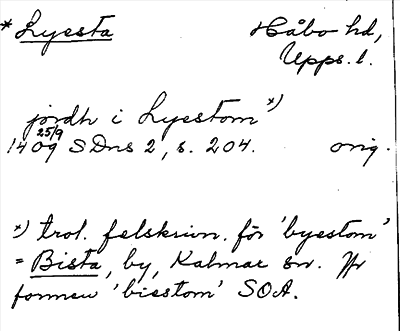 * Lyesta Håbo hd,
Upps. l.
jordh i Lyestom x)
25/9
1409 SDns 2, s. 204. orig.
x) trol. felskrivn. för 'byestom'
= Bista, by, Kalmar sn. Jfr
formen 'biestom' SOA.